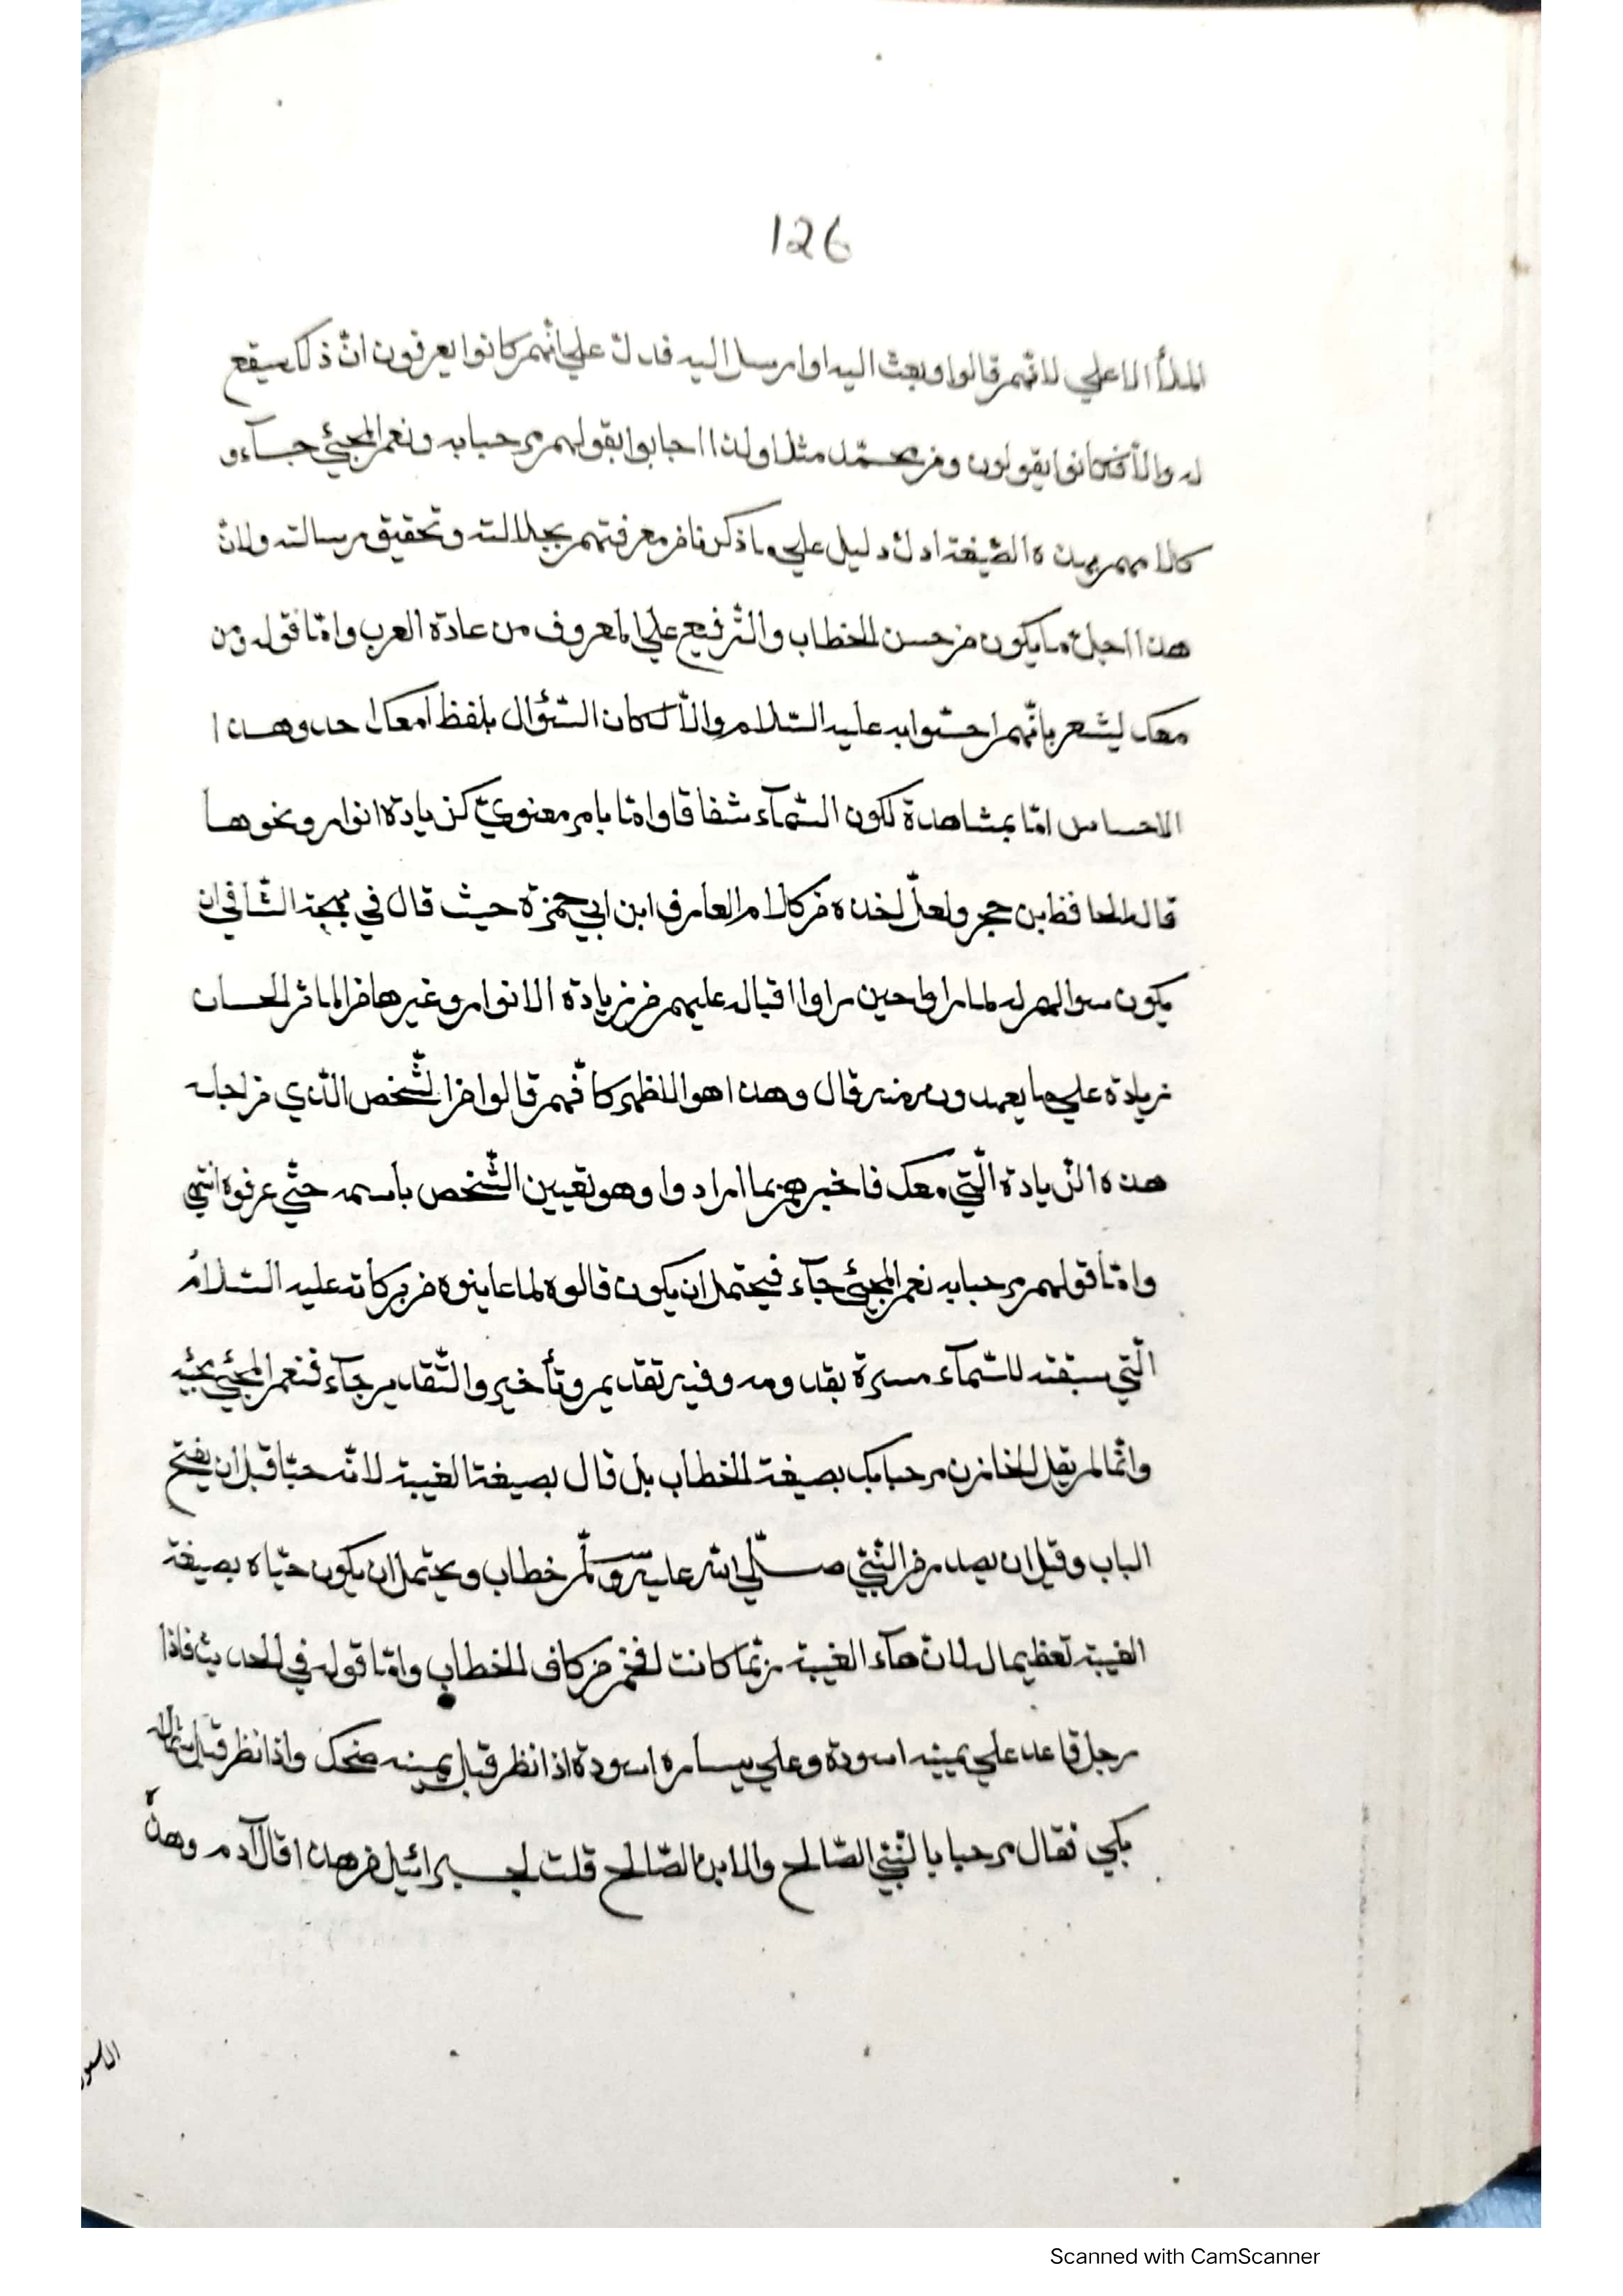 126
الملأ الاعلي لانّهم قالوا وبعث اليه او ارسل اليه فدلّ علي انّهم كانوا يعرفون انّ ذلك سيقع
له والّا فكانوا يقولون ومن محمّد مثلا ولذا اجابوا بقولهم مرحبا به ونعم المجيئ جاء و
كلامهم بهذه الصّيغة ادلّ دليل علي ما ذكرنا من معرفتهم بجلالته وتحقيق رسالته ولانّ
هذا اجلّ ما يكون من حسن الخطاب والتّرفيع علي المعروف من عادة العرب وامّا قوله ومن
معك ليشعر بانّهم احسّوا به عليه السّلام والّا لكان السّؤال بلفظ امعك احد وهذا
الاحساس امّا بمشاهدة لكون السّمآء شفافا وامّا بامر معنويّ كزيادة انوار ونحوها
قاله الحافظ ابن حجر ولعلّ اخذه من كلام العارف ابن ابي حمزة حيث قال في بهجة الثّاني ان
يكون سوالهم له لما راوا حين راوا اقباله عليهم من زيادة الانوار وغيرها من الماثر الحسان
زيادة علي ما يعهدون منه قال وهذا هو الاظهر كانّهم قالوا من الشّخص الّذي من اجله
هذه الزّيادة الّتي معك فاخبرهم بما ارادوا وهو تعيين الشّخص باسمه حتّي عرفوه انتهي
وامّا قولهم مرحبا به نعم المجيئ جآء فيحتمل ان يكون قالوه لما عاينوه من بركاته عليه السّلام
الّتي سبقته للسّمآء مسرة بقدومه وفيه تقديم وتأخير والتّقدير جآء فنعم المجيئ مجيئه
وانّما لم يقل الخازن مرحبا بك بصيغة الخطاب بل قال بصيغة الغيبة لانّه حيّا قبل ان يفتح
الباب وقبل ان يصدر من النّبيّ صلّي الله عليه وسلّم خطاب ويحتمل ان يكون حيّاه بصيغة
الغيبة تعظيما له لانّ هآء الغيبة ربّما كانت افخم من كاف الخطاب وامّا قوله في الحديث فاذا
رجل قاعد علي يمينه اسودة وعلي يساره اسودة اذا نظر قبل يمينه ضحك واذا نظر قبل شماله
بكي فقال مرحبا بالنّبيّ الصّالح والابن الصّالح قلت لجبرائيل من هذا قال آدم وهذه